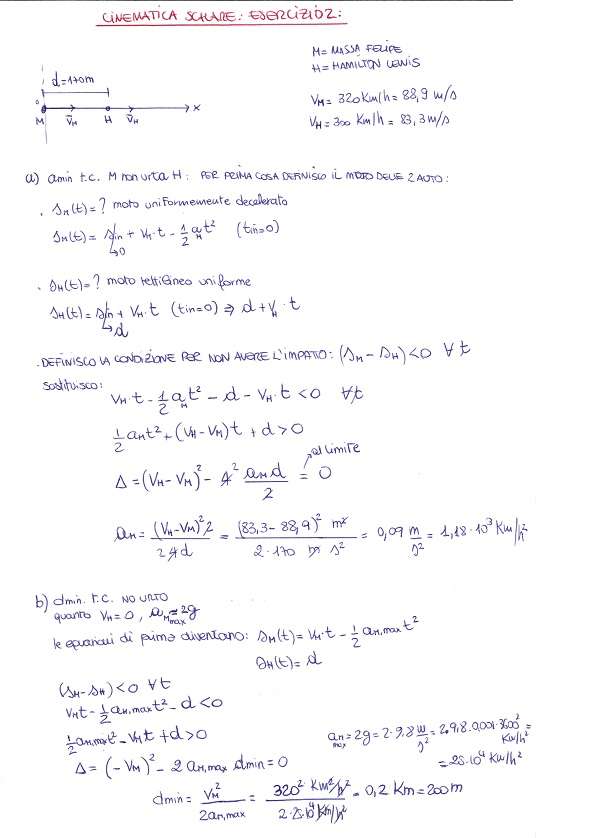 CINEMATICA SCALARE: ESERCIZIO 2:
M = MASSA FELIPE
H = HAMILTON LEWIS
d=170m
V_M = 320 Km/h = 88,9 m/s
V_H = 300 Km/h = 83,3 m/s
0
M V_M H V_H x
a) amin t.c. M non urta H: PER PRIMA COSA DEFINISCO IL MOTO DELLE 2 AUTO:
. s_M(t) = ? moto uniformemente decelerato
s_M(t) = s_in + V_M·t - 1/2 a_M t² (tin=0)
↳0
. s_H(t) = ? moto rettilineo uniforme
s_H(t) = s_in + V_H·t (tin=0) ⇒ d + V_H·t
↳d
. DEFINISCO LA CONDIZIONE PER NON AVERE L'IMPATTO: (s_M - s_H) < 0 ∀ t
sostituisco:
V_M·t - 1/2 a_M t² - d - V_H·t < 0 ∀t
1/2 a_M t² + (V_H - V_M)t + d > 0
al limite
Δ = (V_H - V_M)² - 4² a_M d / 2 = 0
a_M = (V_H - V_M)² 2 / 2 4 d = (83,3 - 88,9)² m² / 2·170 m s² = 0,09 m/s² = 1,18·10³ Km/h²
b) dmin. t.c. NO URTO
quanto V_H = 0, a_M max = 2g
le equazioni di prima diventano: s_M(t) = V_M·t - 1/2 a_M,max t²
s_H(t) = d
(s_M - s_H) < 0 ∀t
V_M t - 1/2 a_M,max t² - d < 0
1/2 a_M,max t² - V_M t + d > 0
a_M max = 2g = 2·9,8 m/s² = 2·9,8·0,001·3600² Km/h² =
= 25·10⁴ Km/h²
Δ = (-V_M)² - 2 a_M,max dmin = 0
dmin = V_M² / 2 a_M,max = 320² Km²/h² / 2·25·10⁴ Km/h² = 0,2 Km = 200 m